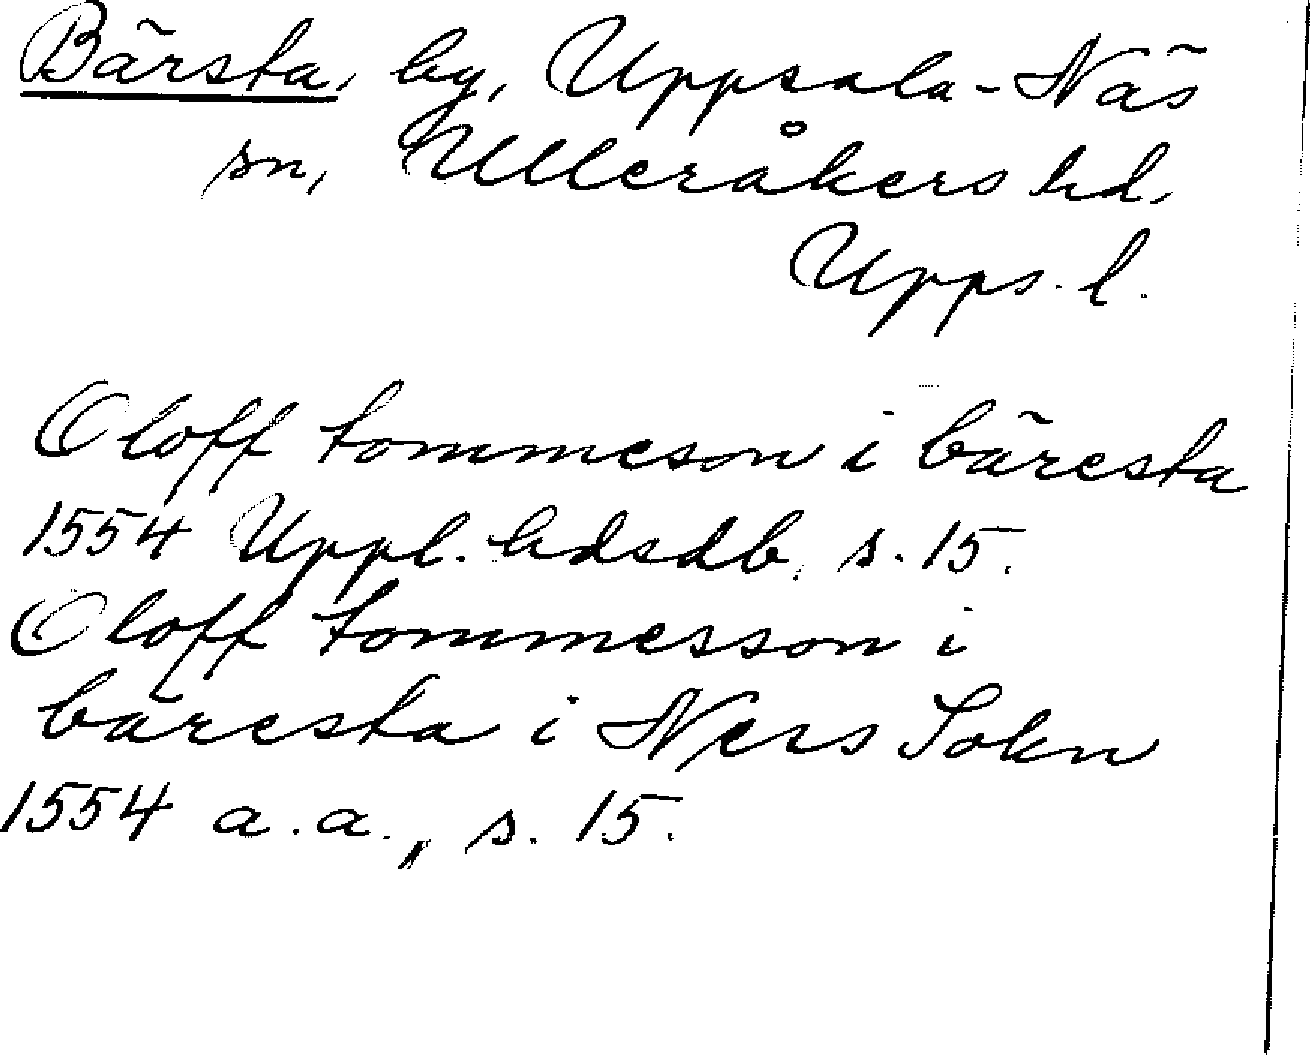 Bärsta, by, Uppsala-Näs
sn, Ulleråkers hd,
Upps. l.
Oloff tommeson i bäresta
1554 Uppl. hdsdb, s. 15.
Oloff tommesson i
bäresta i Ners Sokn
1554 a.a., s. 15.